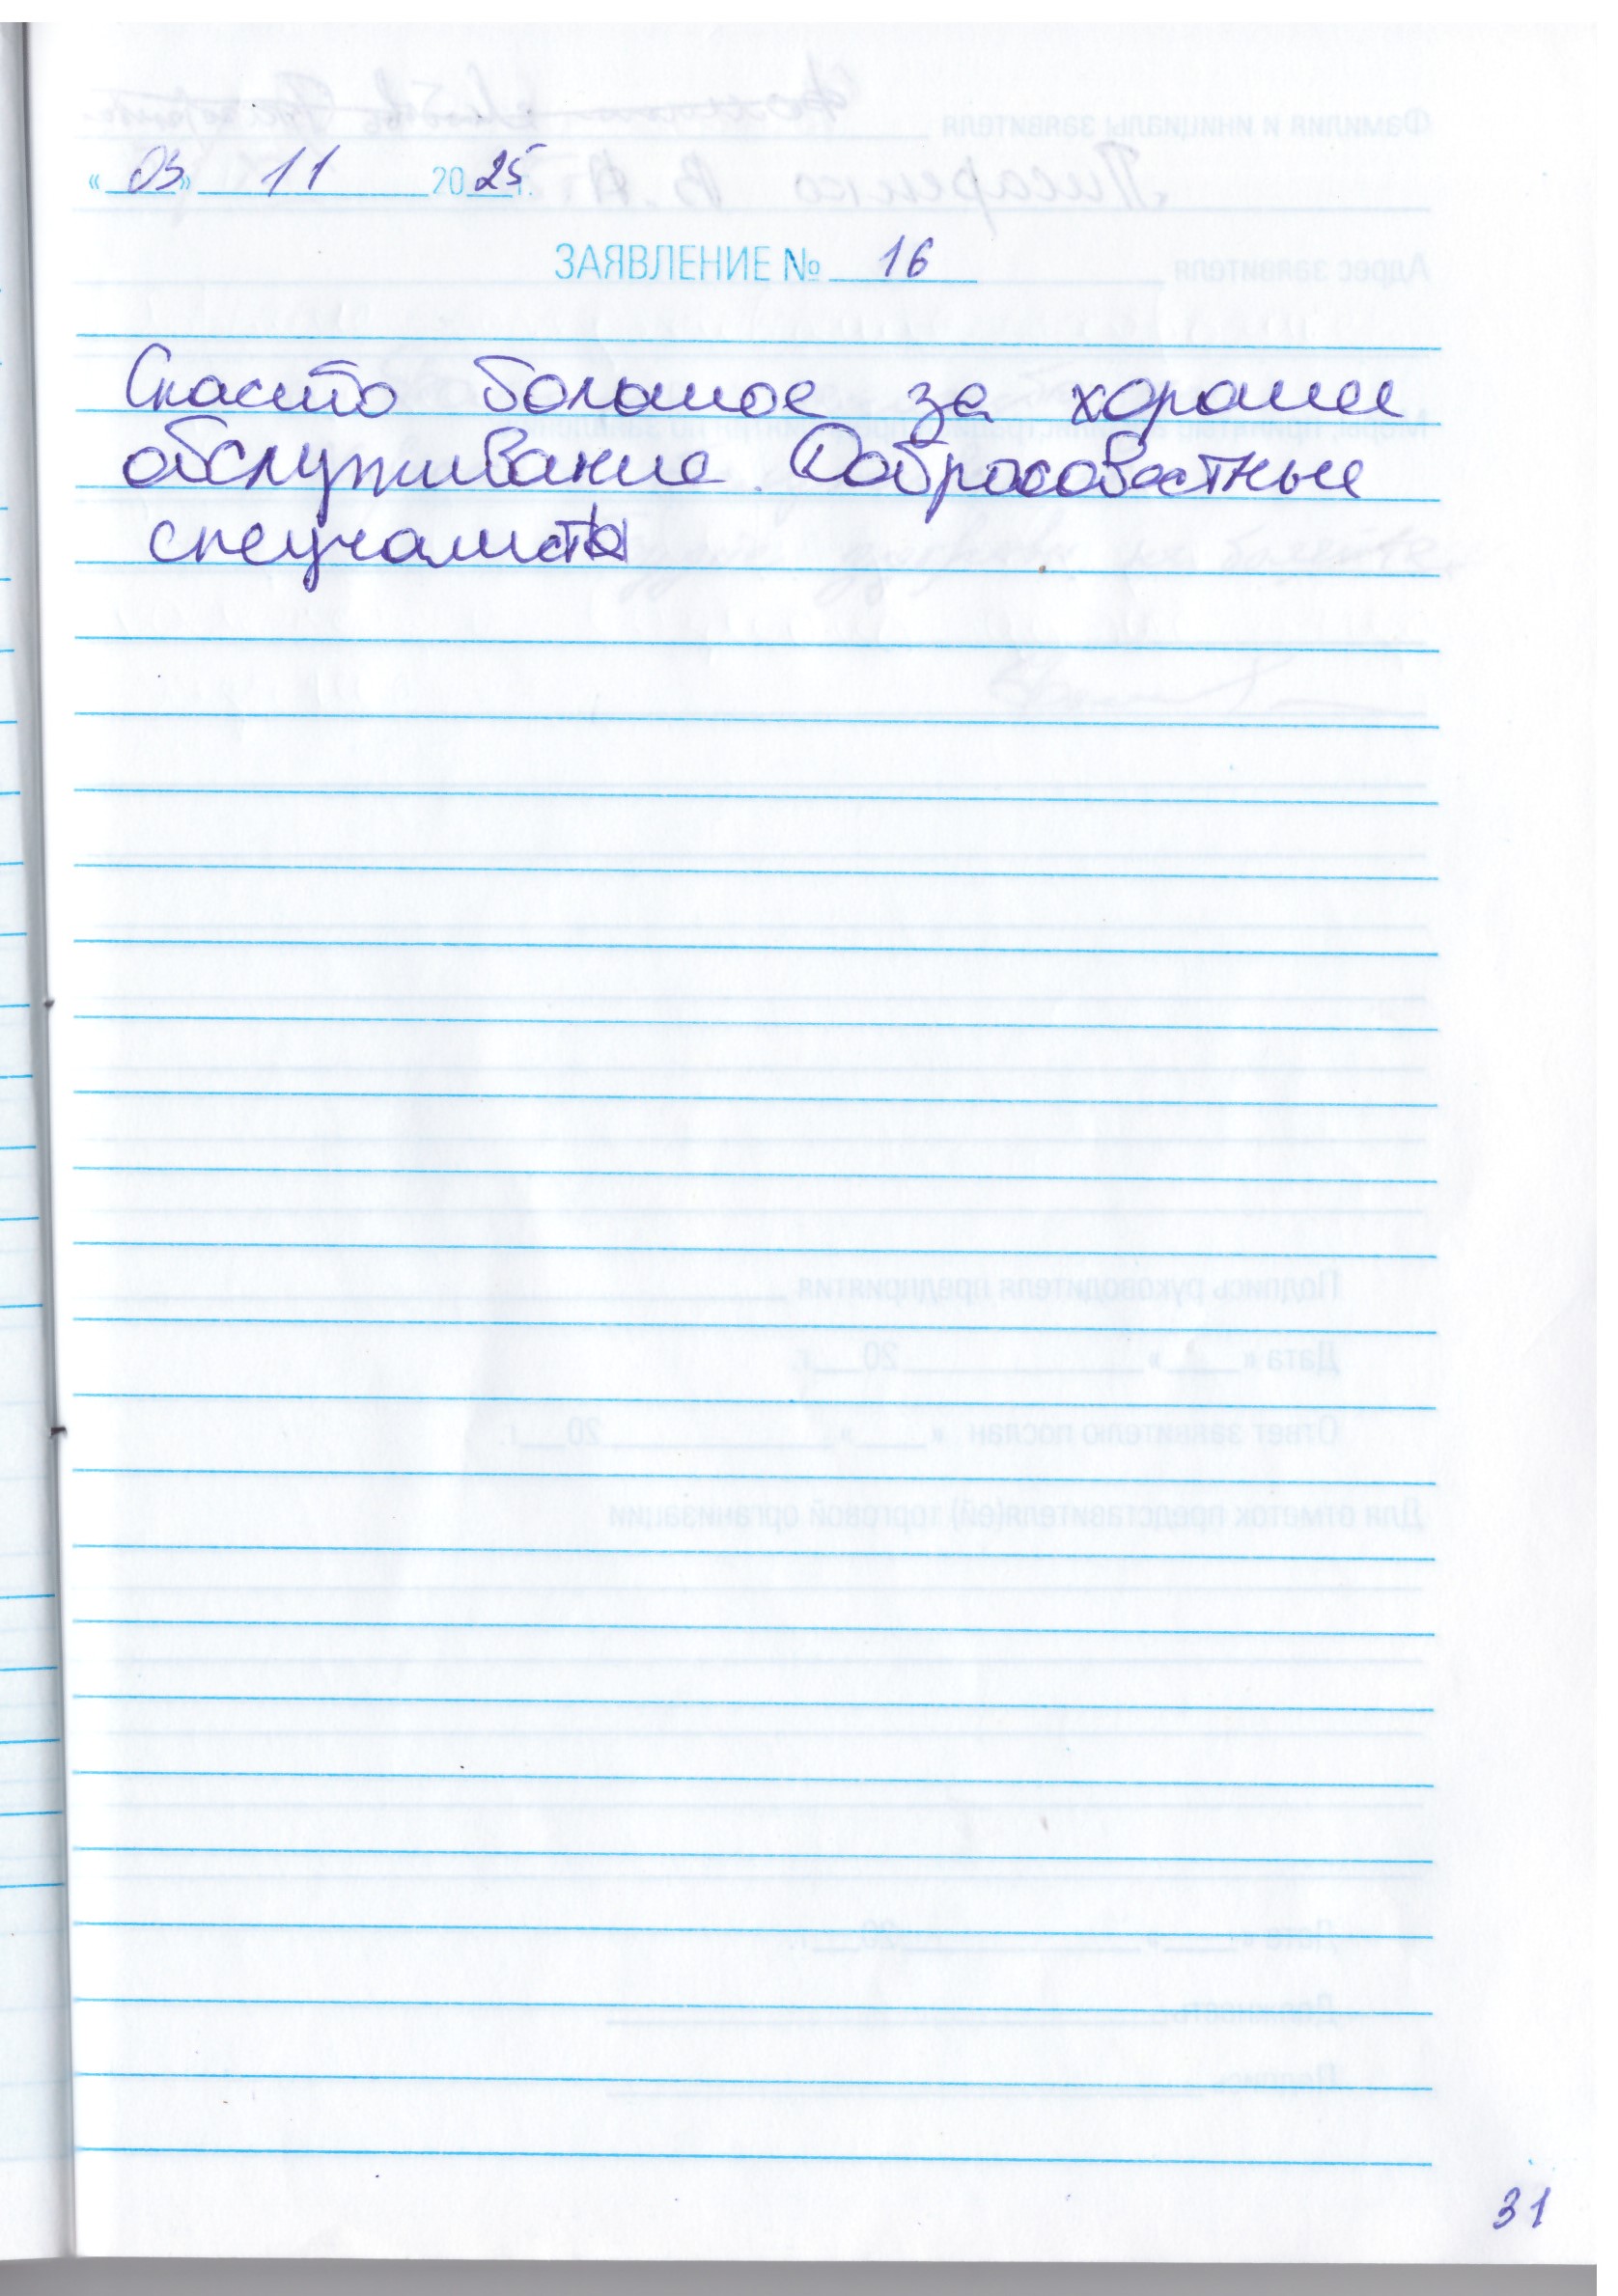 «03» 11 2025г.
ЗАЯВЛЕНИЕ № 16
Спасибо большое за хорошее
обслуживание. Добросовестные
специалисты
31